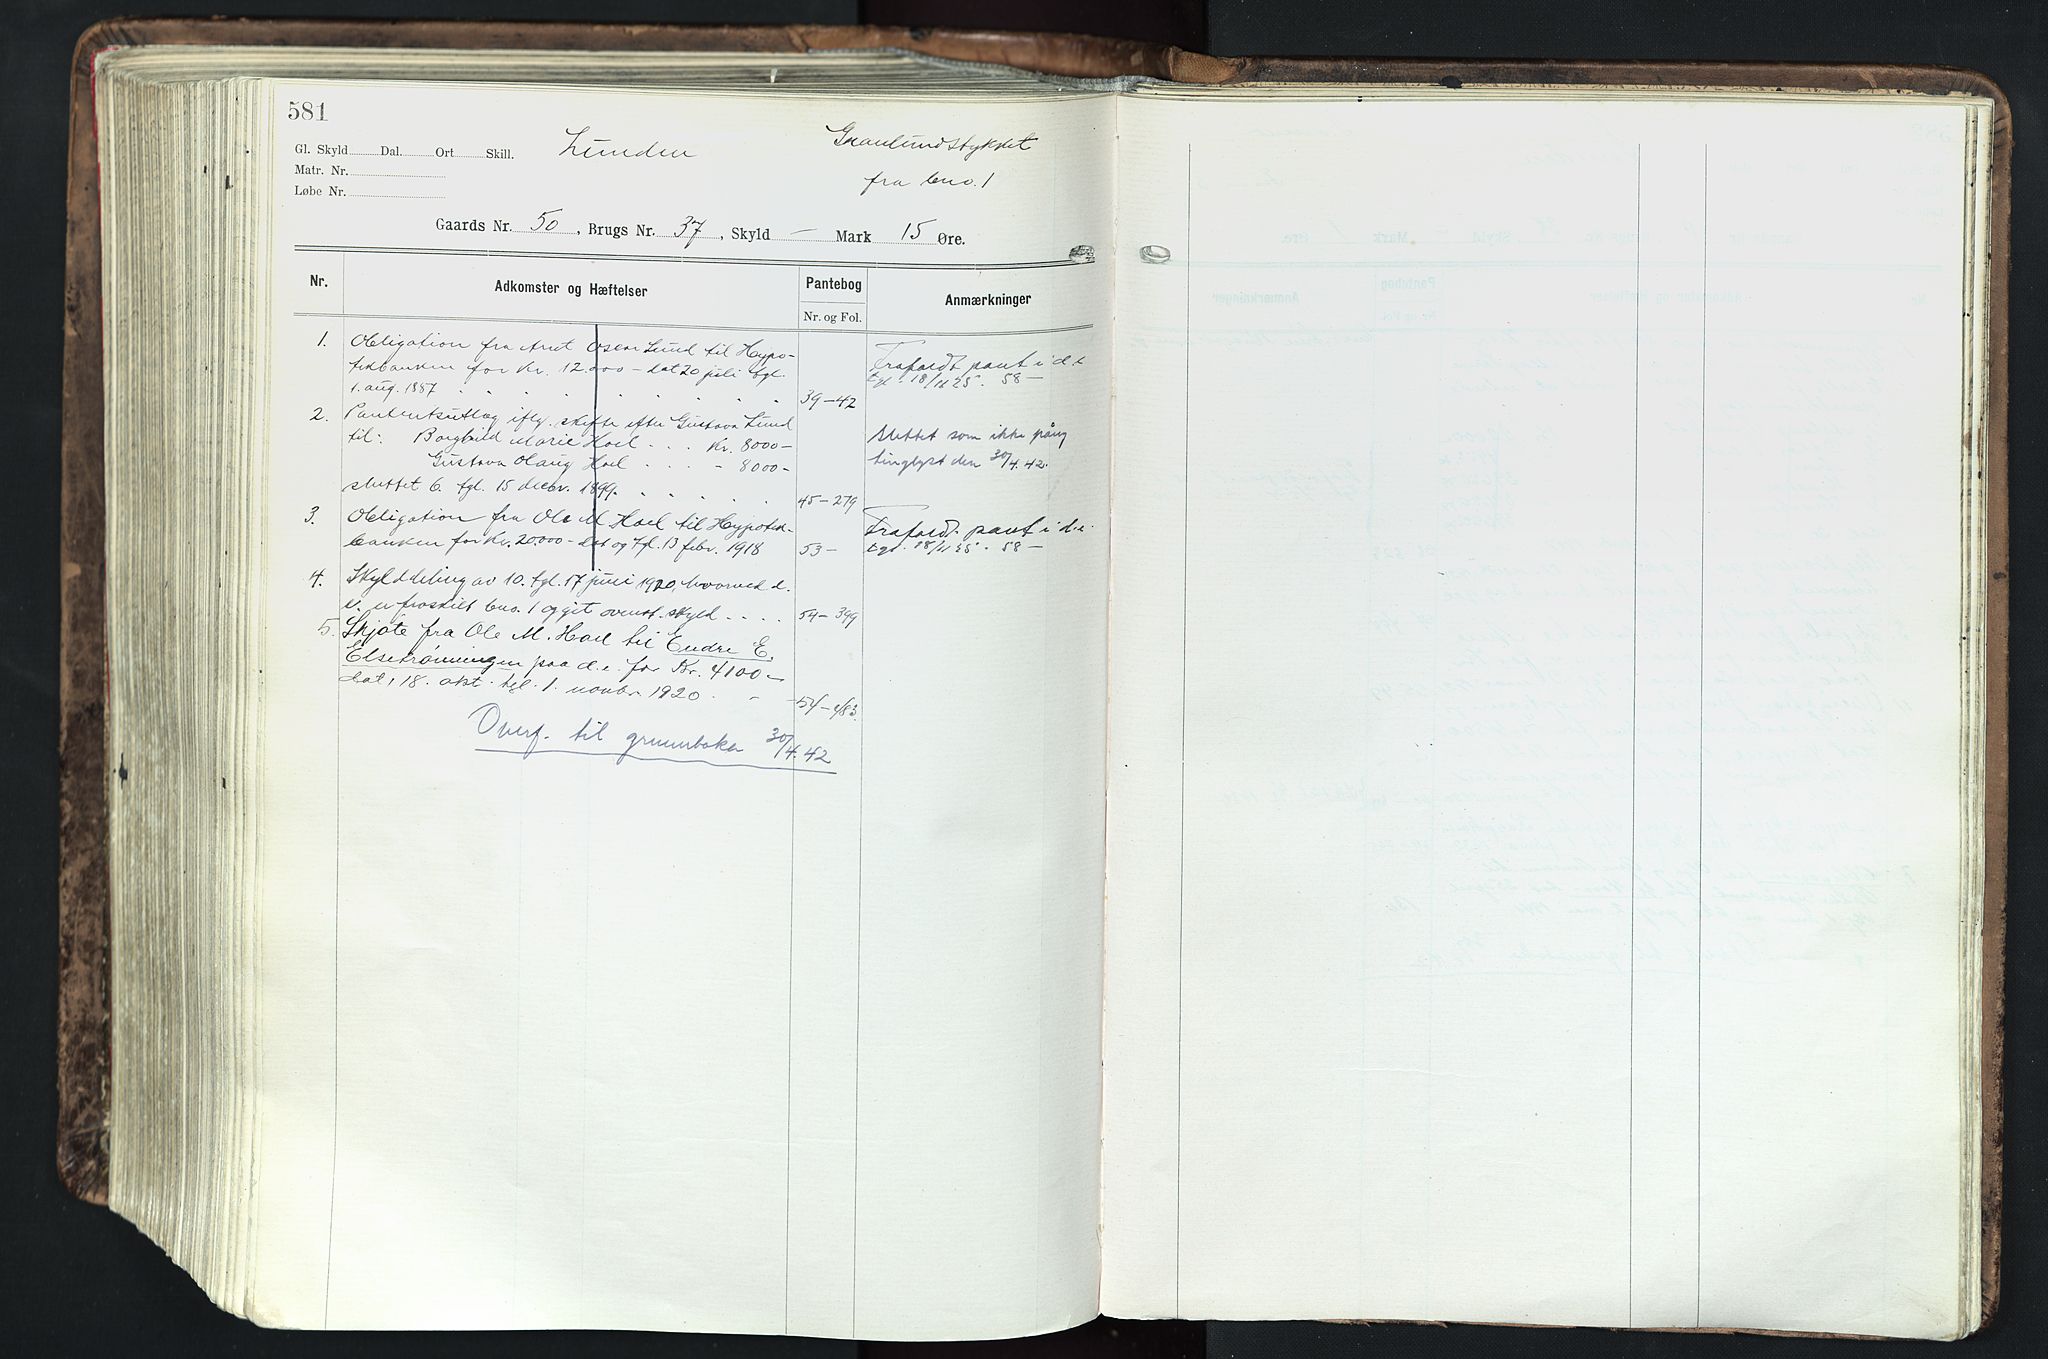 581
Gl. Skyld Dal. Ort Skill. Lunden Granlundstykket
Matr. Nr. fra bno. 1
Løbe Nr.
Gaards Nr. 50, Brugs Nr. 37, Skyld — Mark 15 Øre.
Nr. Adkomster og Hæftelser Pantebog Anmærkninger
Nr. og Fol.
1. Obligation fra Arnt Oscar Lund til Hypo-
tekbanken for Kr. 12.000 — dat 20 juli tgl.
1. aug. 1887 39–42
Frafaldt pant i d. e.
tgl. 18/11 25. 58 —
2. Panteutlæg iflg. skifte efter Gustava Lund
til: Borghild Marie Hoel . . . Kr. 8000 —
Gustava Olaug Hoel . . . . - 8000 —
sluttet 6. tgl. 15 decbr. 1899. 45–279
slettet som ikke påny
tinglyst den 30/4.42.
3. Obligation fra Ole M. Hoel til Hypotek-
banken for Kr. 20.000 — dat og tgl. 13 febr. 1918 53 —
Frafaldt pant i d. e.
tgl. 18/11 25. 58 —
4. Skylddeling av 10. tgl. 17 juni 1920, hvorved d.
e. er fraskilt bno. 1 og git ovenst. skyld . . . . 54–399
5. Skjøte fra Ole M. Hoel til Endre E.
Elsetrønningen paa d. e. for Kr. 4100 —
dat. 18. okt. tgl. 1. novbr. 1920. 54–483.
Overf. til grunnboken 30/4.42